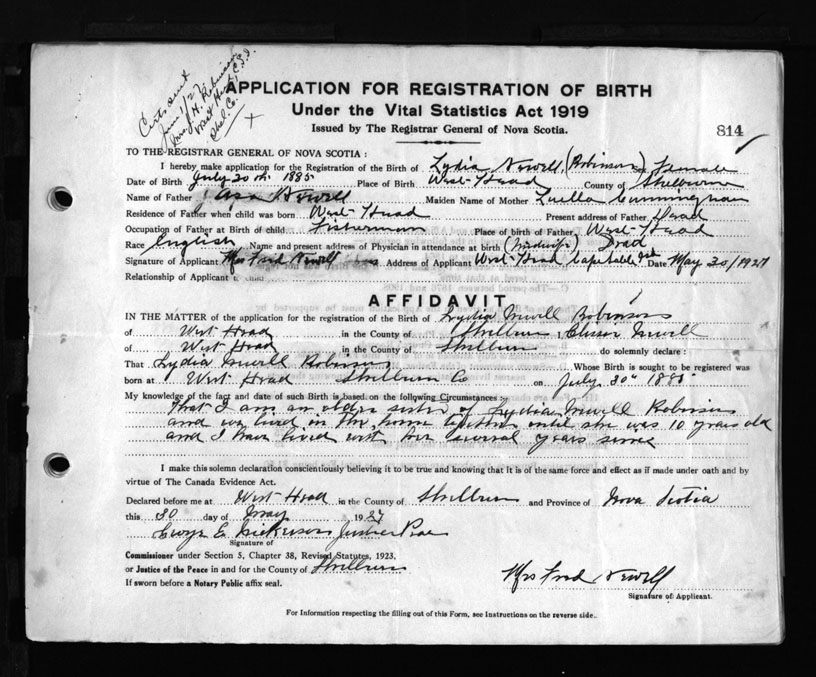 Cert. sent
June 1/27
H. Robinson
West Head C.S.I.
Shel. Co.
APPLICATION FOR REGISTRATION OF BIRTH
Under the Vital Statistics Act 1919
Issued by The Registrar General of Nova Scotia.
814
TO THE REGISTRAR GENERAL OF NOVA SCOTIA :
I hereby make application for the Registration of the Birth of Lydia Newell, (Robinson) Sex Female
Date of Birth July 30th 1885 Place of Birth West Head County of Shelburne
Name of Father Asa Newell Maiden Name of Mother Luella Cunningham
Residence of Father when child was born West Head Present address of Father Dead
Occupation of Father at Birth of child Fisherman Place of birth of Father West Head
Race English Name and present address of Physician in attendance at birth (Midwife) Dead
Signature of Applicant Mrs Fred Newell Address of Applicant West Head Cape Sable Isd Date May 30/1927
Relationship of Applicant to child
AFFIDAVIT
IN THE MATTER of the application for the registration of the Birth of Lydia Newell Robinson
of West Head in the County of Shelburne I, Newell
of West Head in the County of Shelburne do solemnly declare :
That Lydia Newell Robinson Whose Birth is sought to be registered was
born at West Head Shelburne Co on July 30th 1885
My knowledge of the fact and date of such Birth is based on the following Circumstances :-
That I am an older sister of Lydia Newell Robinson
and we lived in the home together until she was 10 years old
and I have lived with her several years since
I make this solemn declaration conscientiously believing it to be true and knowing that it is of the same force and effect as if made under oath and by
virtue of The Canada Evidence Act.
Declared before me at West Head in the County of Shelburne and Province of Nova Scotia
this 30 day of May 1927
E Nickerson Justice Peace
Signature of
Commissioner under Section 5, Chapter 38, Revised Statutes, 1923,
or Justice of the Peace in and for the County of Shelburne
If sworn before a Notary Public affix seal.
Mrs Fred Newell
Signature of Applicant.
For Information respecting the filling out of this Form, see Instructions on the reverse side.